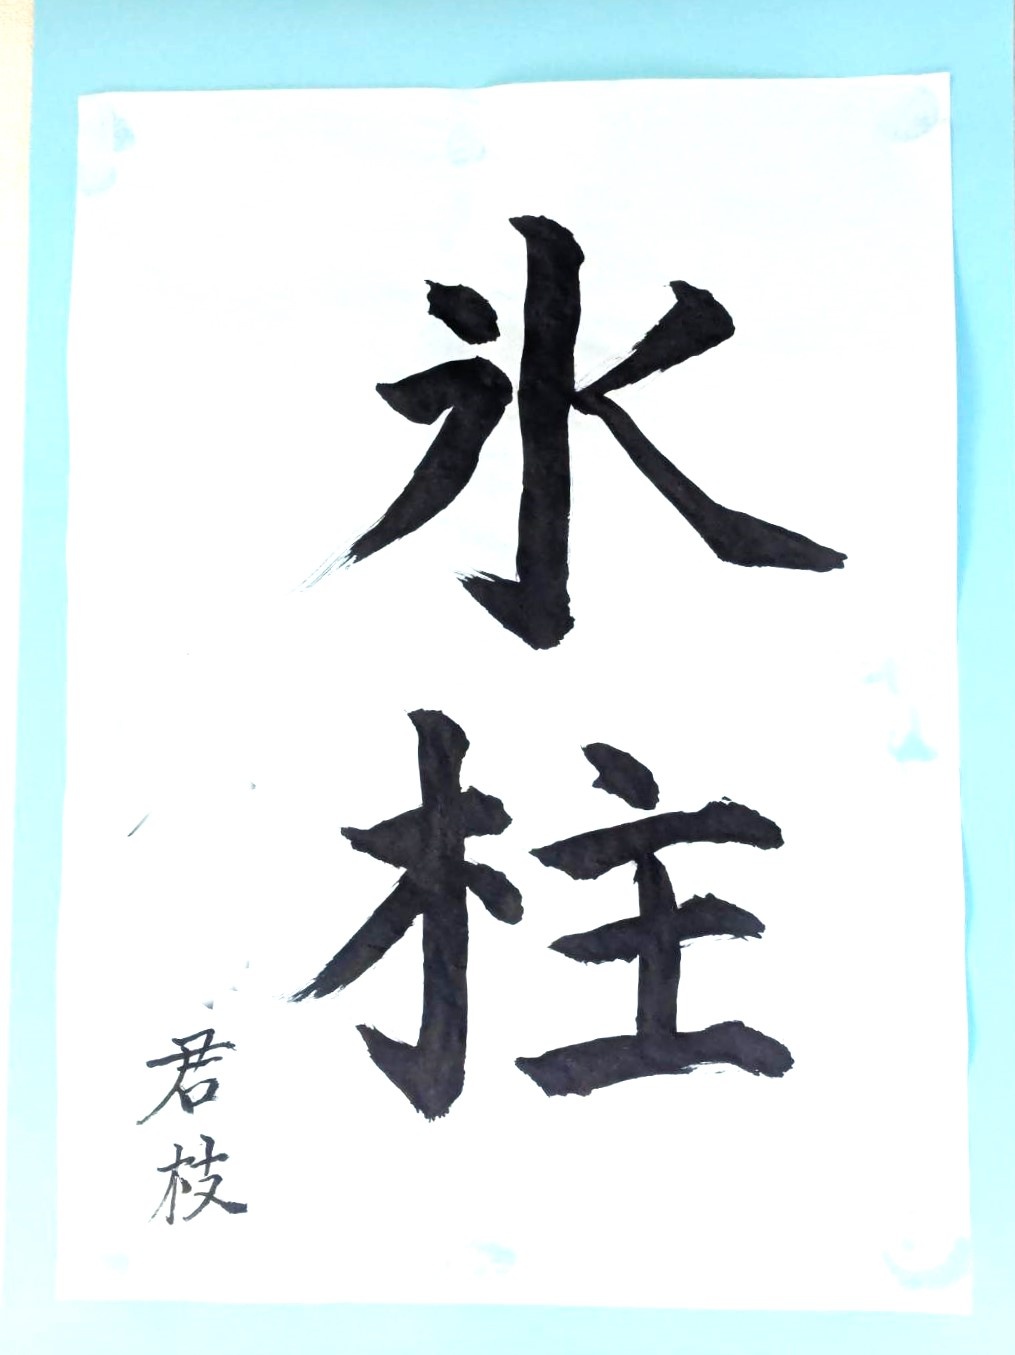 氷柱
君枝